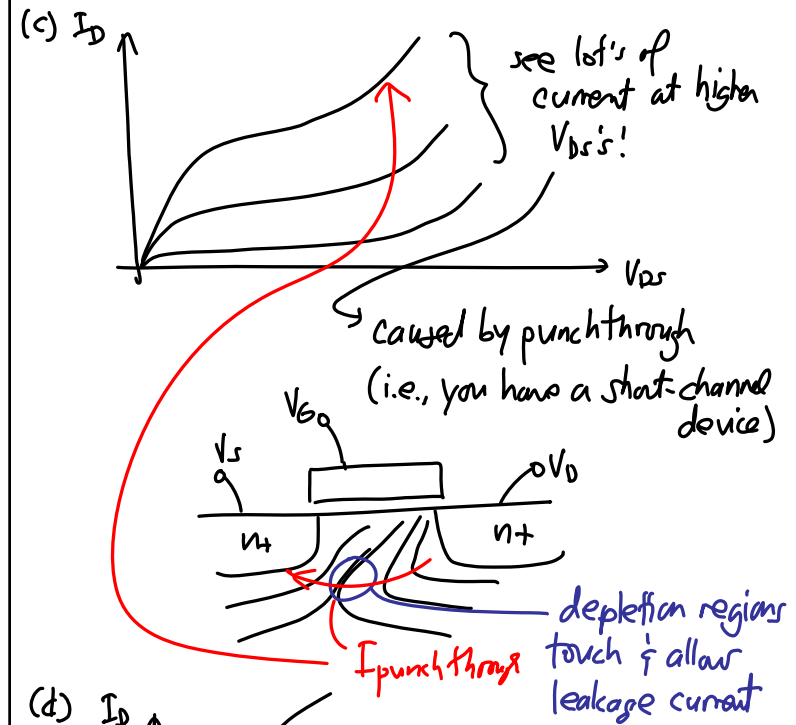 (c) I_D
see lot's of
current at higher
V_DS's!
V_DS
caused by punchthrough
(i.e., you have a short-channel
device)
V_G
V_S
V_D
n+
n+
depletion regions
touch & allow
leakage current
I_punchthrough
(d) I_D